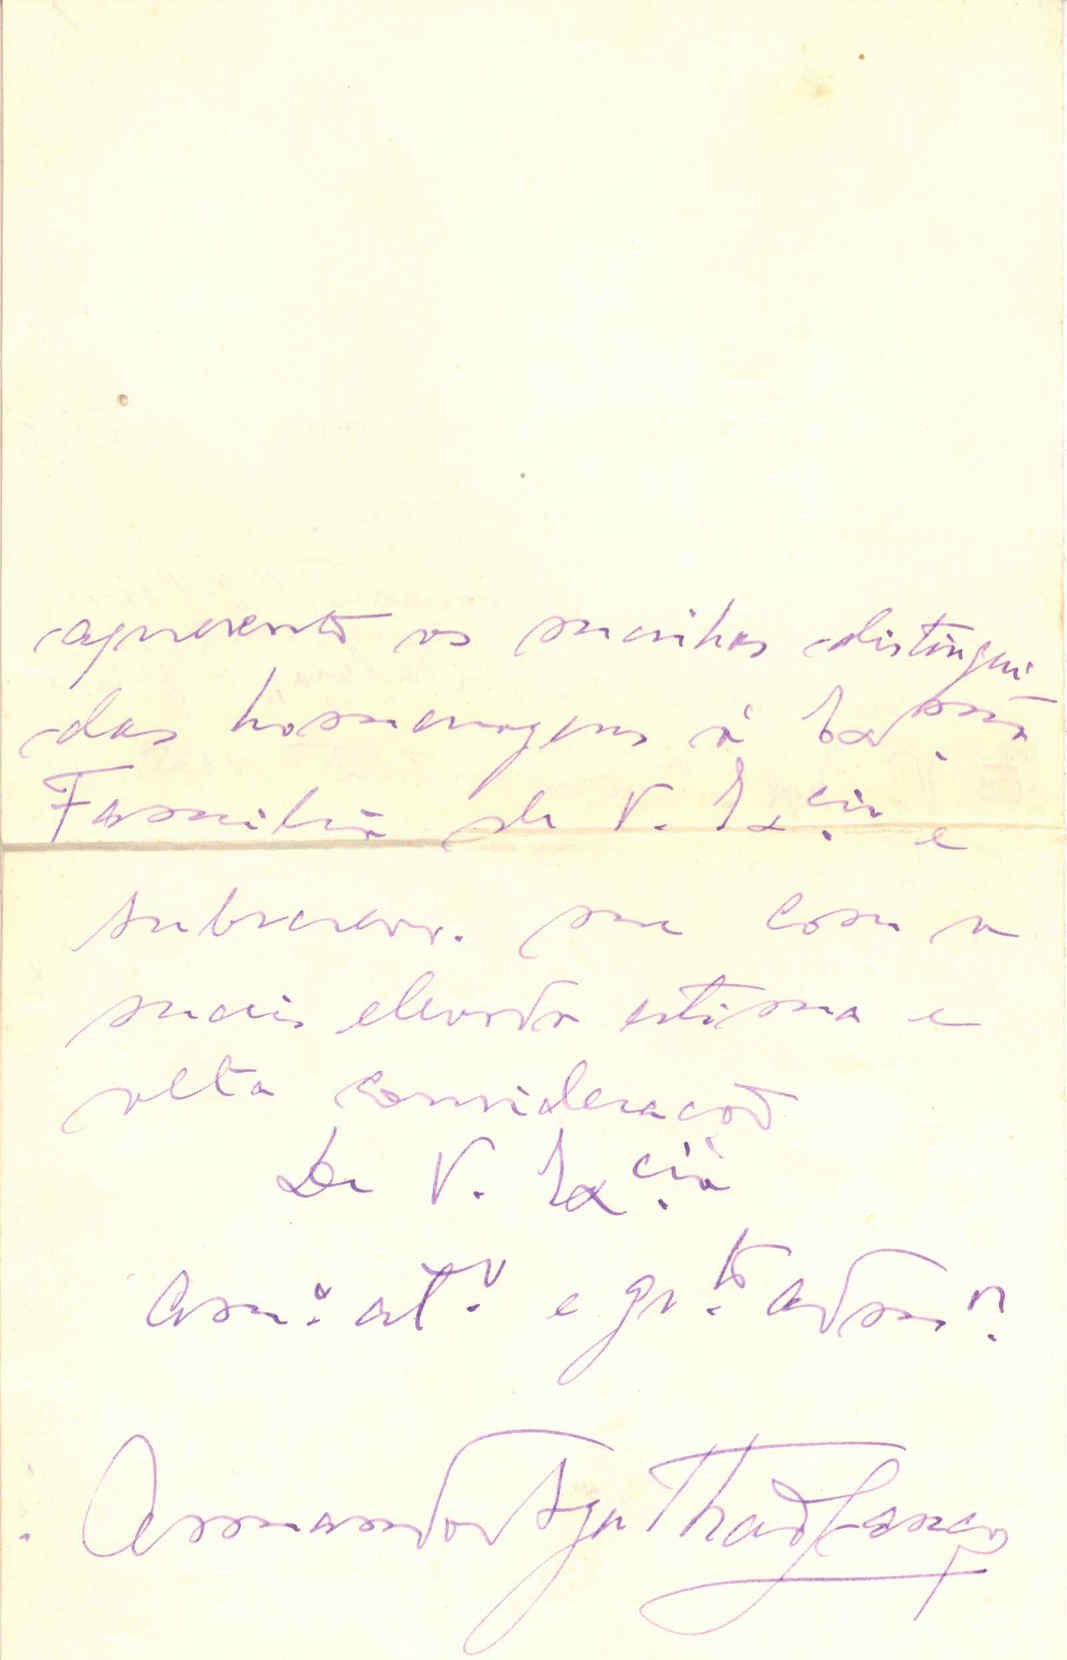 apresento as minhas distingui
das homenagens à Ex.ma
Familia de V. Ex.cia e
subscrevo-me com a
mais elevada estima e
alta consideração
De V. Ex.cia
Am.o at.o e gr.to adm.r
Armando